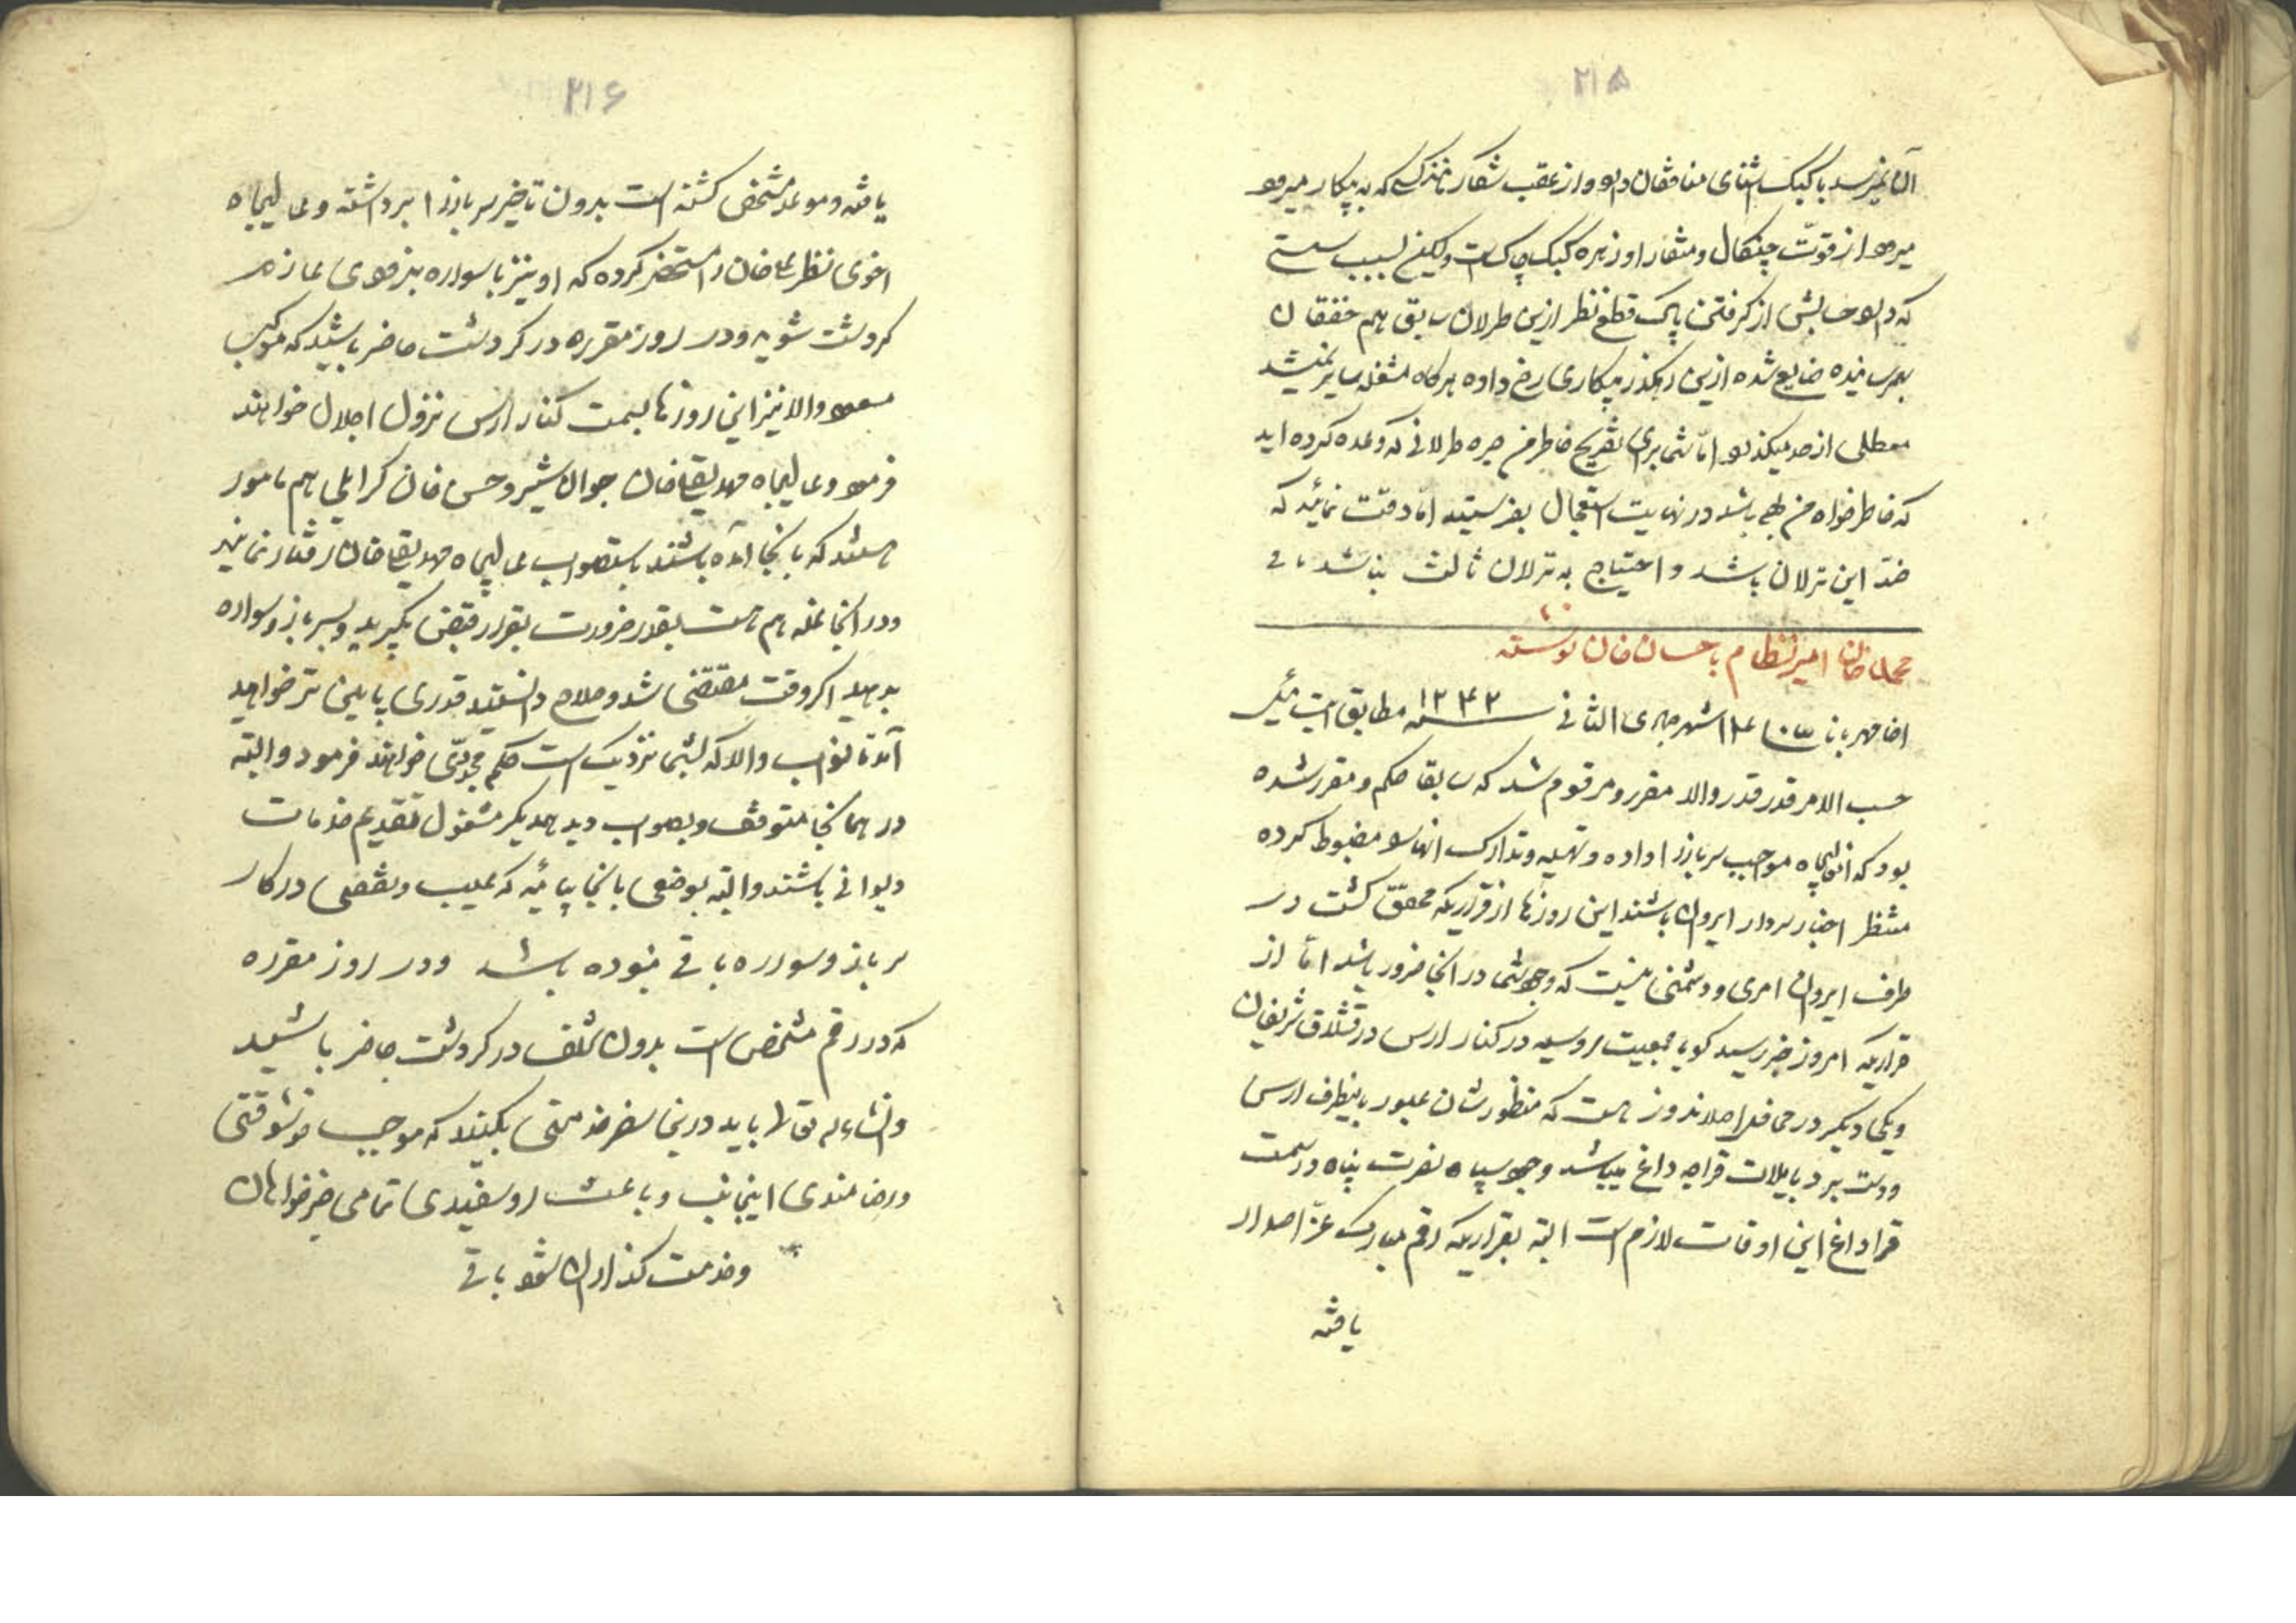 ۲۱۵
آن نمیرسد با کبک اشنای منافقان دارد و از عقب شکار نازک که به پیکار میرود
میرود از قوت چنکال و منقار او زهره کبک چاکست ولیکن بسبب سستی
که دارد حابش از کرفتن پاک قطع نظر ازین طرلان سابق هم خفقان
بهمرسانیده ضایع شده ازین رهکذر بیکاری رخ داده هرکاه مشغله سایر نمیشد
معطلی از حد میکذرد اما شما برای تفریح خاطر من جره طرلانی که وعده کرده اید
که خاطرخواه من باشد در نهایت استعجال بفرستید اما دقت نمائید که
ضد این ترلان باشد و احتیاج به ترلان ثالث نباشد باقی
محمد خان امیر نظام باحسان خان نوشته
شهر جمادی الثانی سنه ۱۲۴۲ مطابق
حسب الامر قدر قدر والا مقرر و مرقوم شد که سابقا حکم و مقرر شده
بود که انعالیجاه مواجب سرباز را داده و تهیه و تدارک انها را مضبوط کرده
منتظر اخبار سردار ایروان باشند این روزها از قراریکه محقق کشت در
طرف ایروان امری و دشمنی نیست که وجود شما در انجا ضرور باشد اما از
قراریکه امروز خبر رسید کویا جمعیت روسیه در کنار ارس در قشلاق شریفان
و یکی دیکر در محافل اصلاندوز هست که منظورشان عبور باینطرف ارس
و دست برد بایلات قراجه داغ میباشد وجود سپاه نصرت پناه در سمت
قراداغ این اوقات لازم است البته بقراریکه رقم مبارک عز اصدار
یافته
۲۱۶
یافته و موعد مشخص کشته است بدون تاخیر سرباز را برداشته و عالیجاه
اخوی نظرعلیخان را مستحضر کرده که او نیز با سواره بزودی عازم
کردشت شوید و در روز مقرره در کردشت حاضر باشید که موکب
مسعود والا نیز این روزها بسمت کنار ارس نزول اجلال خواهند
فرمود و عالیجاه مهدیقلیخان جوانشیر و حسن خان کرایلی هم مامور
هستند که بانجا آمده باشند باستصواب عالیجاه مهدیقلیخان رفتار نمایند
و در انجا غله هم هست بقدر ضرورت بقرار قبض بکیرید و بسرباز و سواره
بدهید اکر وقت مقتضی شد و صلاح دانستید قدری پایین تر خواهید
آمد تا نواب والا که بشما نزدیک است حکم مجددی خواهند فرمود و البته
در همانجا متوقف و بصواب دید همدیکر مشغول تقدیم خدمات
دیوانی باشند و البته بوضعی بانجا بیائید که عیب و نقصی در کار
سرباز و سواره باقی نبوده باشد و در روز مقرره
که در رقم مشخص است بدون تخلف در کردشت حاضر باشید
و انشاءالله تعالی باید درین سفر خدمتی بکنید که موجب خوشوقتی
و رضامندی اینجانب و باعث روسفیدی تمامی خیرخواهان
و خدمت کذاران شود باقی